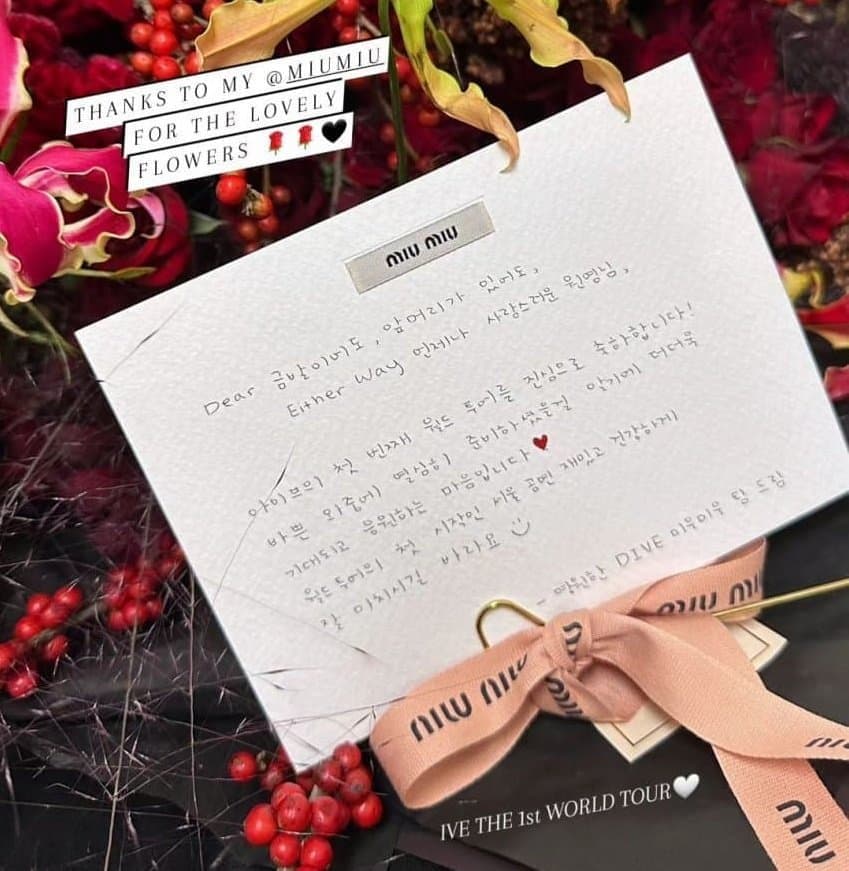 THANKS TO MY @MIUMIU
FOR THE LOVELY
FLOWERS
MIU MIU
Dear 금발이어도, 앞머리가 있어도,
Either Way 언제나 사랑스러운 원영님,
아이브의 첫 번째 월드 투어를 진심으로 축하합니다!
바쁜 와중에 열심히 준비하셨을걸 알기에 더더욱
기대되고 응원하는 마음입니다
월드투어의 첫 시작인 서울 공연 재밌고 건강하게
잘 마치시길 바라요
- 영원한 DIVE 미우미우 팀 드림
MIU MIU
MIU MIU
MIU
IVE THE 1st WORLD TOUR